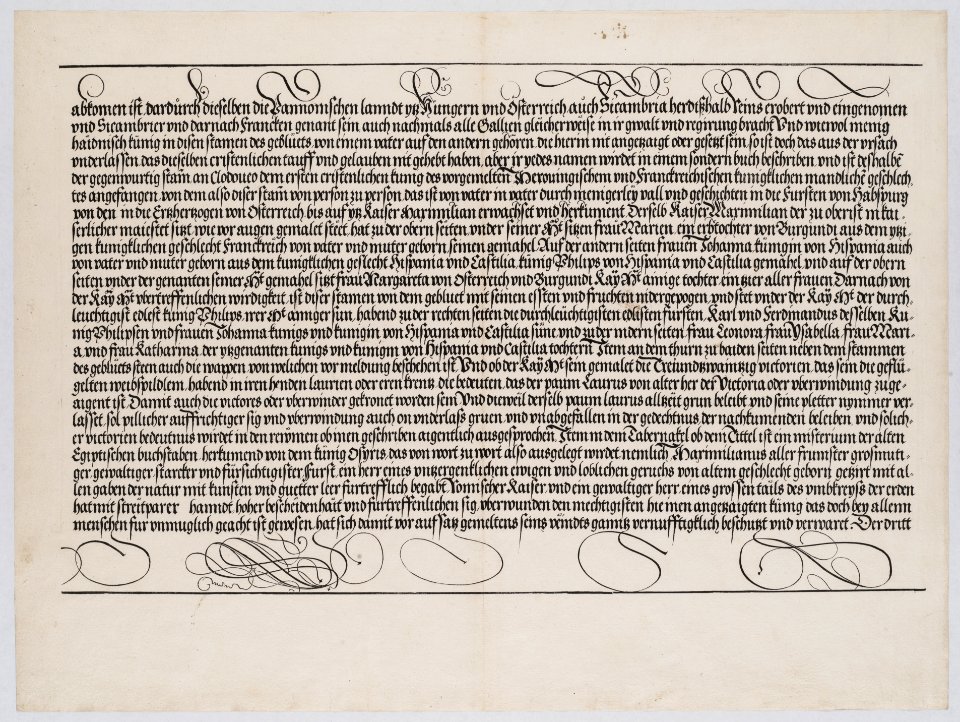 abkomen ist, dardurch dieselben die Pannonischen lanndt ytz Hungern vnd Österreich auch Sicambria herdißhalb Reins erobert vnd eingenomen
vnd Sicambrier vnd darnach Francken genant sein auch nachmals alle Gallien gleicherweise in ir gwalt vnd regirung bracht Vnd wiewol menig
haidnisch künig in disen stamen des gebluets von einem vater auf den andern gehören die hierin mit angetzaigt oder gesetzt sein, so ist doch das aus der vrsach
vnderlassen, das dieselben cristenlichen tauff vnd gelauben nit gehebt haben, aber ir yedes namen wirdet in einem sondern buch beschriben vnd ist deshalbē
der gegenwurtig stam̄ an Clodoueo dem ersten cristenlichen kunig des vorgemelten Merouingischem vnd Franckreichischen kunigklichen mandlichē geschlech,
tes angefangen, von dem also diser stam̄ von person zu person, das ist von vater in vater durch menigerley vall vnd geschichten in die Fursten von Habspurg
von den in die Ertzhertzogen von Osterreich bis auf ytz Kaiser Maximilian erwachset vnd herkument Derselb Kaiser Maximilian der zu oberist in kai,
serlicher maiestet sitzt, wie vor augen gemalet steet, hat zu der obern seiten vnder seiner Mt sitzen frau Marien, ein erbtochter von Burgundi aus dem ytzi,
gen kunigklichen geschlecht Franckreich von vater vnd muter geborn seinen gemahel Auf der andern seiten frauen Johanna künigin von Hispania auch
von vater vnd muter geborn aus dem kunigklichen geslecht Hispania vnd Castilia künig Philips von Hispania vnd Castilia gemahel, vnd auf der obern
seiten vnder der genanten seiner Mt gemahel sitzt frau Margareta von Osterreich vnd Burgundi Kay Mt ainige tochter ein tzier aller frauen Darnach von
der Kay Mt vbertreffenlichen wirdigkeit ist diser stamen von dem gebluet mit seinen essten vnd fruchten nidergepogen, vnd stet vnder der Kay Mt der durch,
leuchtigist edlest kunig Philips irer Mt ainiger sun, habend zu der rechten seiten die durchleuchtigisten edlisten fursten, Karl vnd Ferdinandus desselben Ku-
nig Philipsen vnd frauen Johanna kunigs vnd kunigin von Hispania vnd Castilia süne vnd zu der andern seiten frau Leonora frau Ysabella, frau Mari-
a, vnd frau Katharina, der ytzgenanten kunigs vnd kunigin von Hispania vnd Castilia tochtern Item an dem thurn zu baiden seiten neben dem stammen
des gebluets steen auch die wappen von welichen vor meldung beschehen ist Vnd ob der Kay Mt sein gemalet die Treiundtzwaintzig victorien, das sein die geflü-
gelten weibspildlem, habend in iren henden laurien oder eren krentz die bedeuten, das der paum Laurus von alter her der Victoria oder vberwindung zuge-
aigent ist Damit auch die victores oder vberwinder gekronet worden sein Vnd dieweil derselb paum laurus alltzeit grun beleibt vnd seine pletter nymmer ver-
lasset, sol pillicher auffrichtiger sig vnd vberwindung auch on vnderlass gruen vnd vnabgefallen in der gedechtnus der nachkumenden beleiben, vnd solich-
er victorien bedeutnus wirdet in den reymen ob inen geschriben aigentlich ausgesprochen Item in dem Tabernakel ob dem Tittel ist ein misterium der alten
Egiptischen buchstaben herkumend von dem künig Osyris, das von wort zu wort also ausgelegt wirdet, nemlich Maximilianus aller frumster grosmuti-
ger gewaltiger starcker vnd fürsichtigister Furst, ein herr eines vntzergenklichen ewigen vnd loblichen geruchs von altem geschlecht geborn, getzirt mit al-
len gaben der natur mit kunsten vnd guetter leer furtrefflich begabt, Romischer Kaiser vnd ein gewaltiger herr eines grossen tails des vmbkreyss der erden
hat mit streitparer hanndt hoher bescheidenhait vnd fürtreffenlichen sig, vberwunden den mechtigisten hie inen angetzaigten künig das doch bey allenn
menschen fur vnmuglich geacht ist gewesen, hat sich damit vor auffsatz gemeltens seins veindts gantz vernufftigklich beschutzt vnd verwart. Der dritt